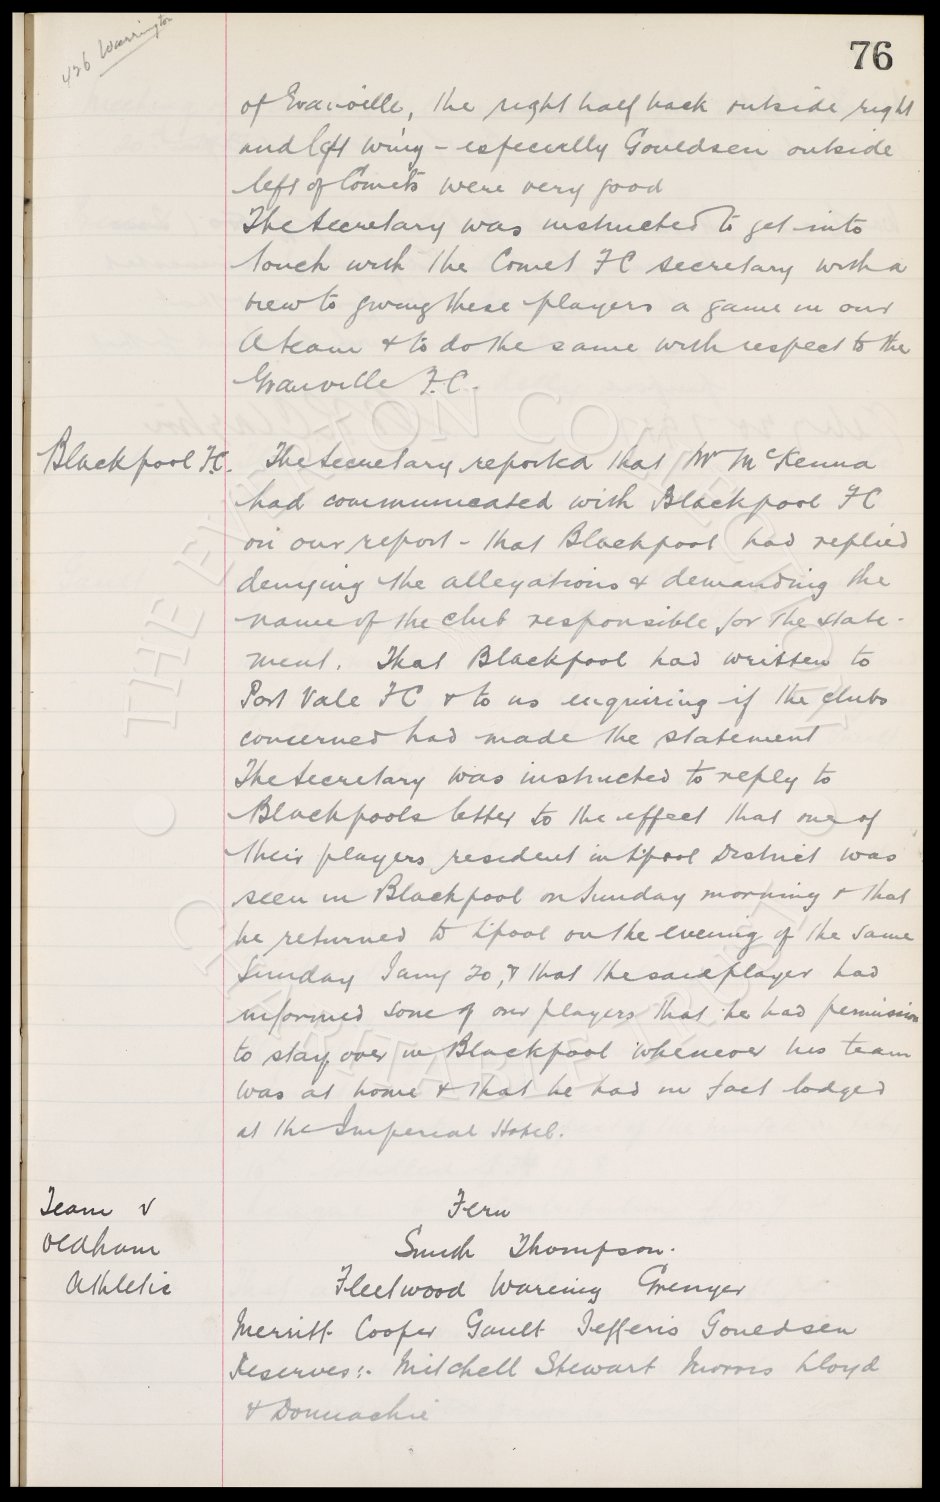 426 Warrington
76
of Granville, the right half back outside right
and left wing - especially Gouldsen outside
left of Comets were very good
The Secretary was instructed to get into
touch with the Comet FC secretary with a
view to giving these players a game in our
A team & to do the same with respect to the
Granville F.C.
Blackpool F.C. The Secretary reported that Mr McKenna
had communicated with Blackpool FC
on our report - that Blackpool had replied
denying the allegations & demanding the
name of the club responsible for the state-
ment. That Blackpool had written to
Port Vale FC & to us enquiring if the clubs
concerned had made the statement
The Secretary was instructed to reply to
Blackpools letter to the effect that one of
their players resident in L'pool District was
seen in Blackpool on Sunday morning & that
he returned to L'pool on the evening of the same
Sunday Jany 20, & that the said player had
informed some of our players that he had permission
to stay over in Blackpool whenever his team
was at home & that he had in fact lodged
at the Imperial Hotel.
Team v Fern
Oldham Smith Thompson.
Athletic Fleetwood Wareing Grenyer
Merritt Cooper Gault Jefferis Gouldsen
Reserves:- Mitchell Stewart Morris Lloyd
& Donnachie
THE EVERTON COLLECTION CHARITABLE TRUST